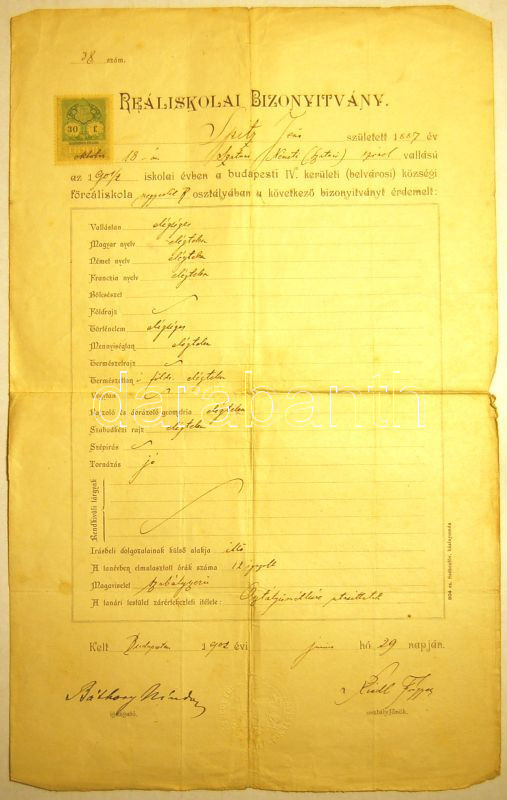 38 szám.
REÁLISKOLAI BIZONYITVÁNY.
30 f
Spitz Jenő született 1887 év
október 13-án vallású
az 1901/2 iskolai évben a budapesti IV. kerületi (belvárosi) községi
főreáliskola negyedik B osztályában a következő bizonyitványt érdemelt:
Vallástan elégséges
Magyar nyelv elégtelen
Német nyelv elégtelen
Franczia nyelv elégtelen
Bölcsészet
Földrajz
Történelem elégséges
Mennyiségtan elégtelen
Természetrajz
Természettan elégtelen
Vegytan
Rajzoló és ábrázoló geometria elégtelen
Szabadkézi rajz elégtelen
Szépirás
Tornázás jó
Rendkivüli tárgyak
Irásbeli dolgozatainak külső alakja
A tanévben elmulasztott órák száma 12 igazolt
Magaviselet szabályszerű
A tanári testület zárértekezleti itélete: Osztályismétlésre utasíttatik
Kelt Budapesten 1902 évi június hó 29 napján.
Báthory Nándor
igazgató.
osztályfőnök.
darabanth